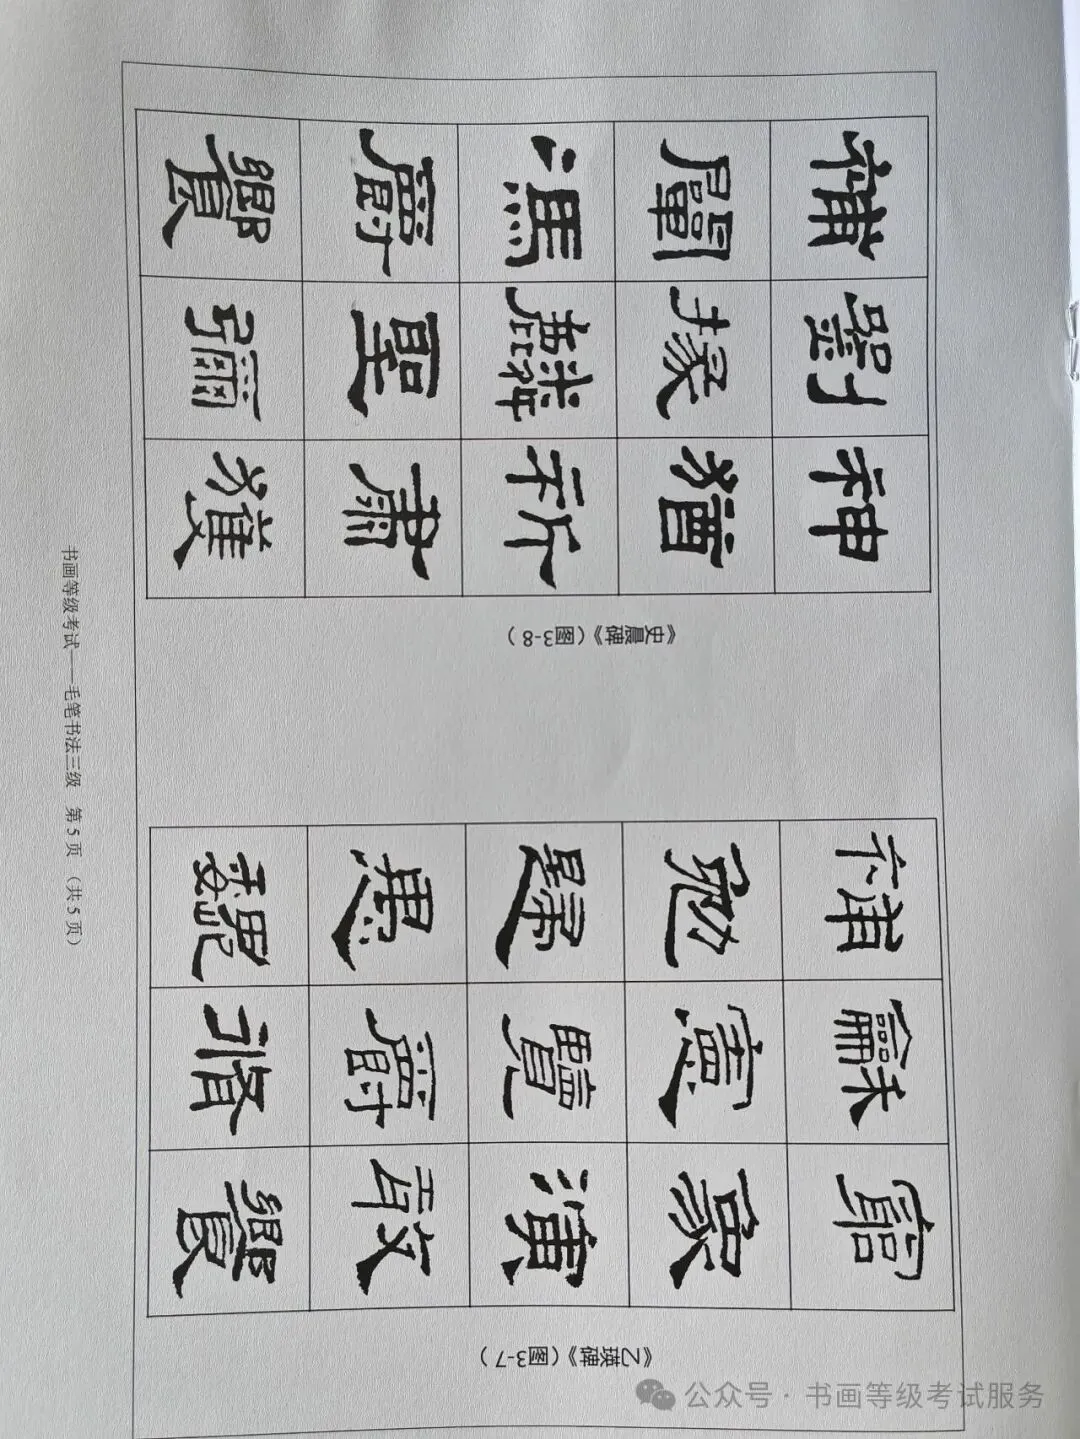 《乙瑛碑》（图3-7）
演 饗
龢 憲 覽 爵
補 勉 歸 愚 魏
《史晨碑》（图3-8）
神 祈 肅 獲
劉 掾 麟 聖 彌
補 闡 馮 爵 饗
书画等级考试——毛笔书法三级 第5页（共5页）
公众号·书画等级考试服务